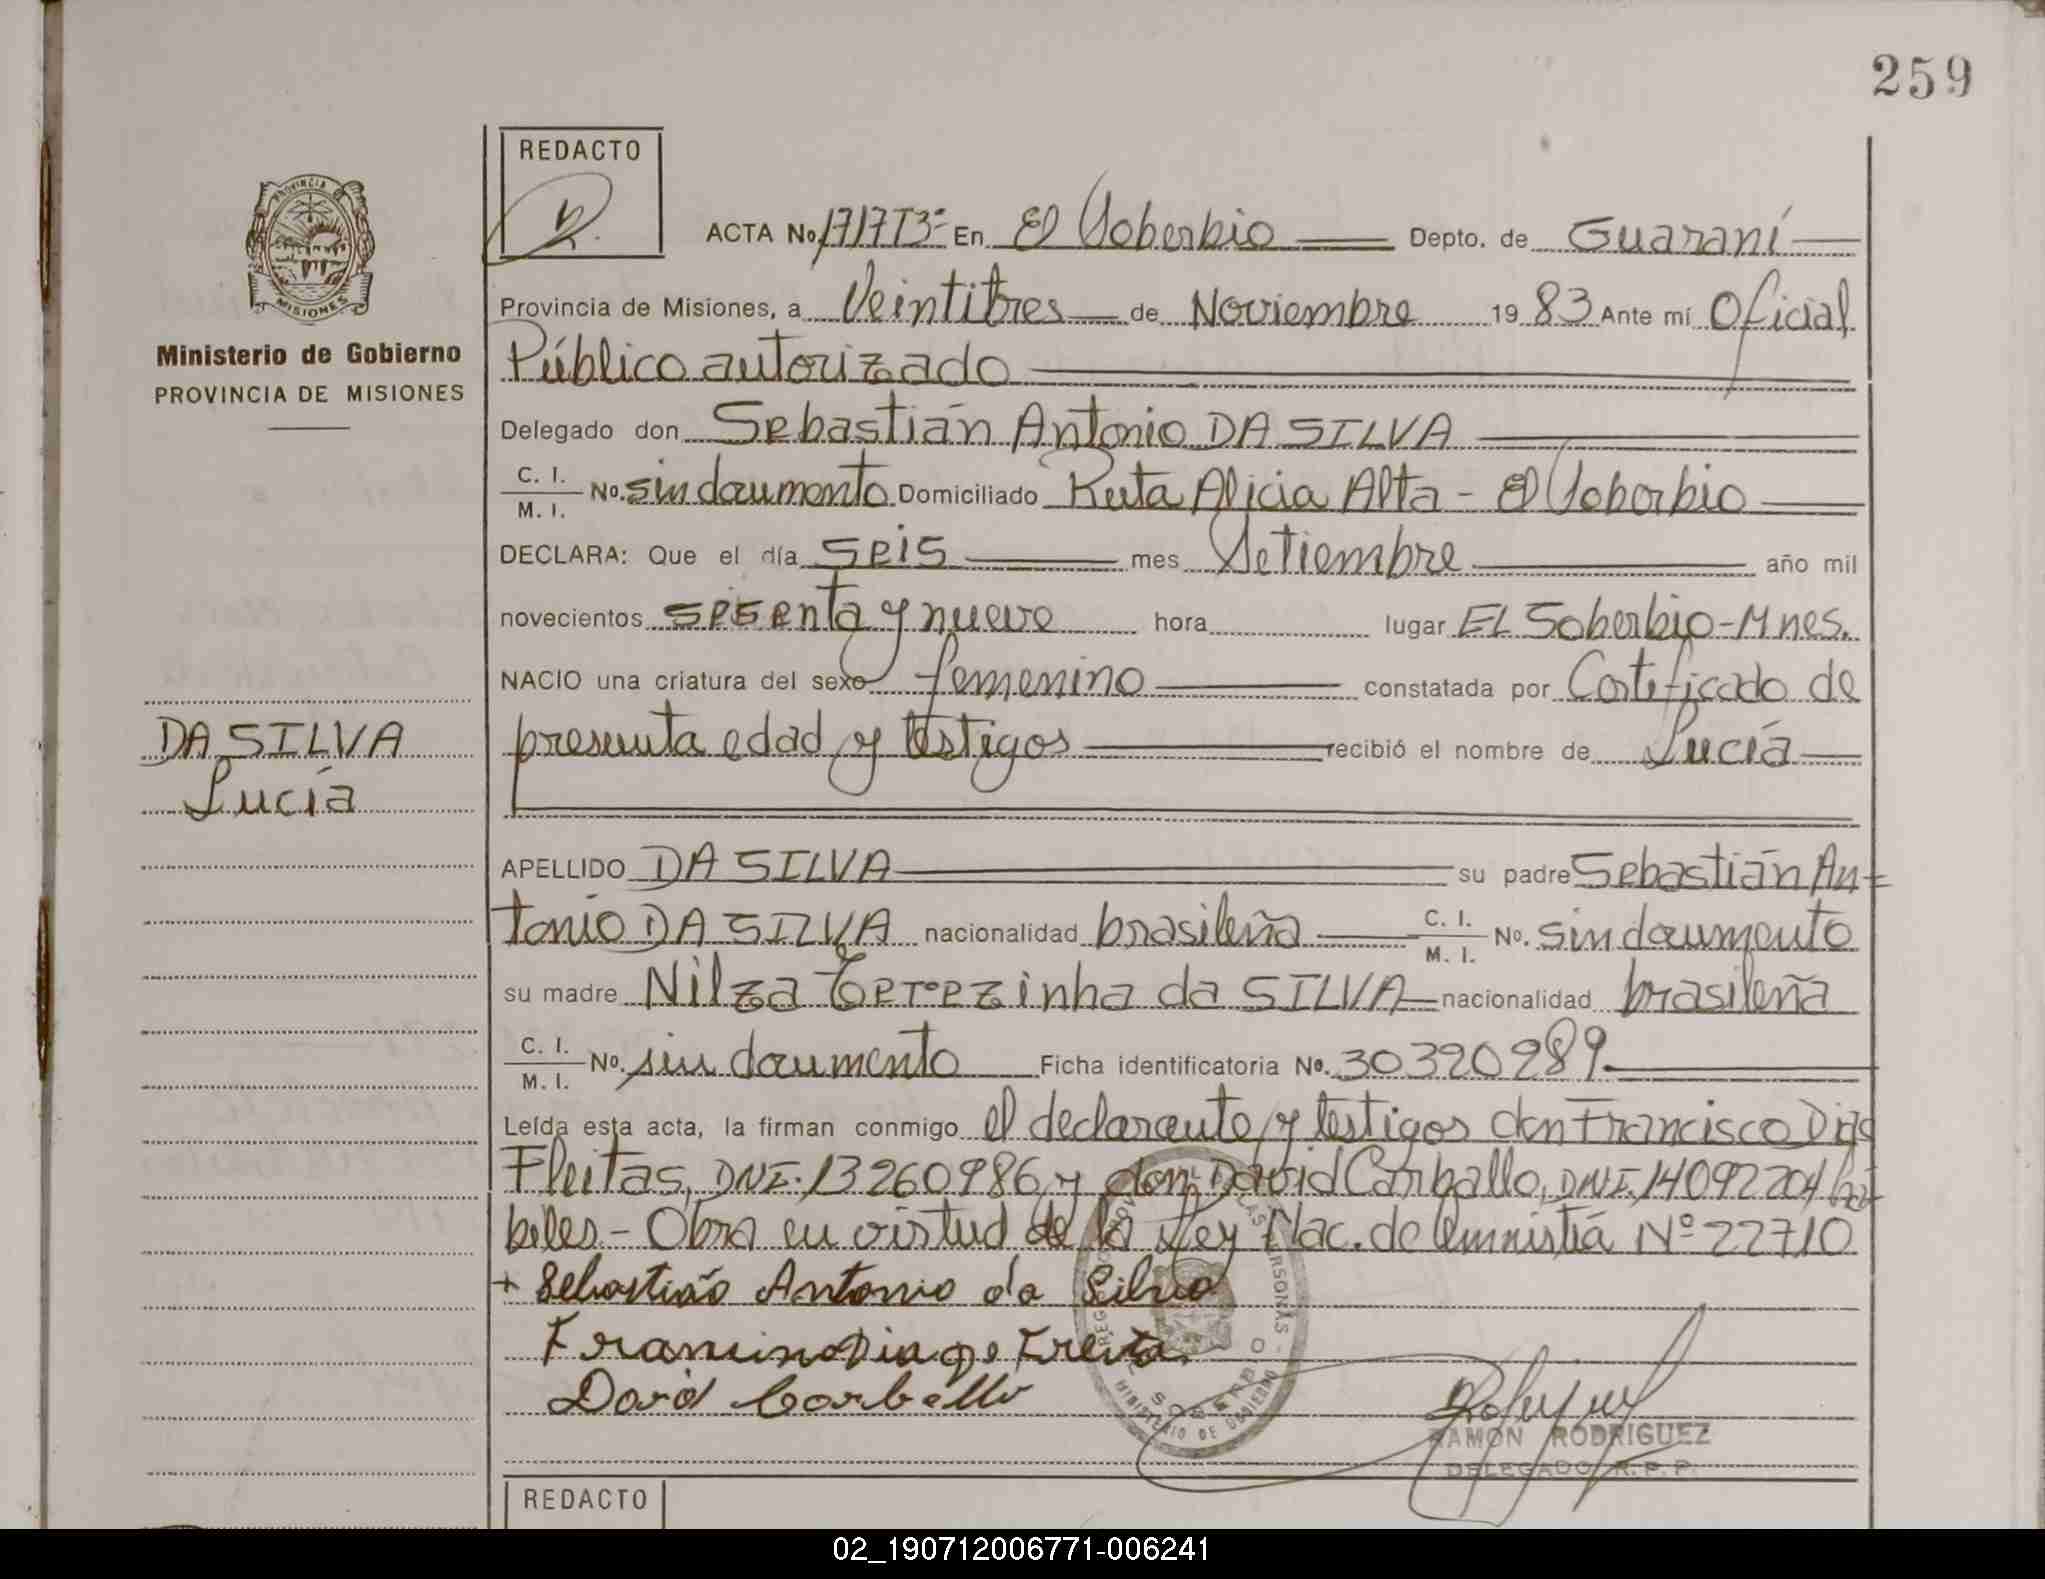 259
REDACTO
PROVINCIA DE
MISIONES
Ministerio de Gobierno
PROVINCIA DE MISIONES
ACTA No 1717T3- En El Soberbio Depto. de Guaraní
Provincia de Misiones, a Veintitres de Noviembre 19 83 Ante mí Oficial
Público autorizado
Delegado don Sebastián Antonio DA SILVA
C. I. M. I. No. sin documento Domiciliado Ruta Alicia Alta - El Soberbio
DECLARA: Que el día seis mes Setiembre año mil
novecientos sesenta y nueve hora lugar EL Soberbio - Mnes.
NACIO una criatura del sexo femenino constatada por Certificado de
presunta edad y testigos recibió el nombre de Lucía
DA SILVA
Lucía
APELLIDO DA SILVA su padre Sebastián An-
tonio DA SILVA nacionalidad brasileña C. I. M. I. No. sin documento
su madre Nilza Terezinha da SILVA nacionalidad brasileña
C. I. M. I. No. sin documento Ficha identificatoria No. 30320989
Leída esta acta, la firman conmigo el declarante y testigos don Francisco Dias
Fleitas, DNI. 13260986 y don David Carballo, DNI. 14092204 há-
biles - Obra en virtud de la Ley Nac. de Amnistía Nº 22710
+ Sebastião Antonio da Silva
David Carballo
SOBERBIO
MINISTERIO DE GOBIERNO
RAMON RODRIGUEZ
DELEGADO R. P. P.
REDACTO
02_190712006771-006241